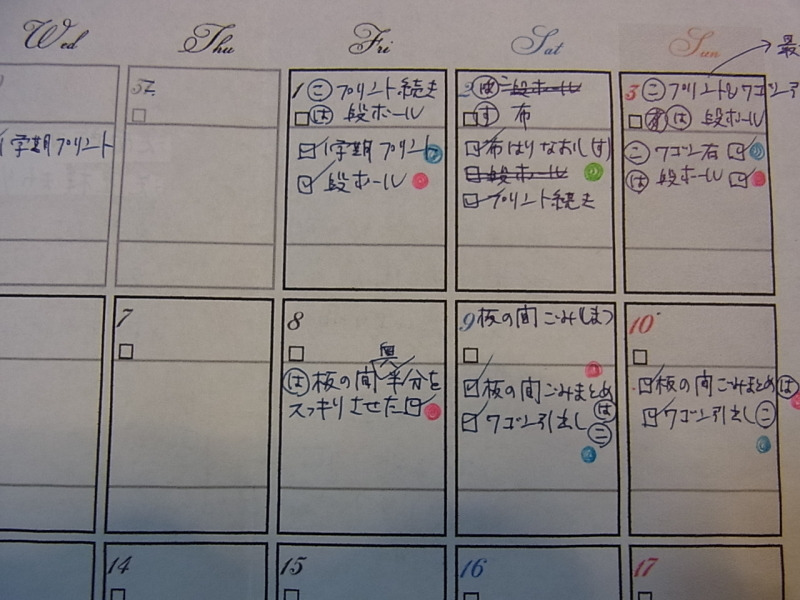 Wed Thu Fri Sat Sun
1学期プリント
1 こ プリント続き
は 段ボール
1学期プリント
段ボール
2 は 段ボール
す 布
布はりなおし(す)
段ボール
プリント続き
最
3 こ プリントとワゴン
は 段ボール
こ ワゴン右
は 段ボール
7
8
奥
は 板の間半分を
スッキリさせた
9 板の間ごみしまつ
板の間ごみまとめ
は
ワゴン引出し
こ
10
板の間ごみまとめ は
ワゴン引出し こ
14 15 16 17